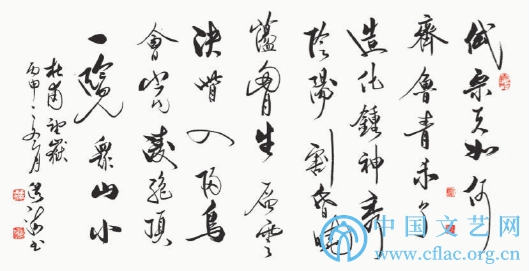 岱宗夫如何
齊魯青未了
造化鍾神秀
陰陽割昏曉
蕩胸生層雲
決眥入歸鳥
會當凌絕頂
一覽眾山小
杜甫望嶽
丙申 月 海書
中国文艺网
www.cflac.org.cn